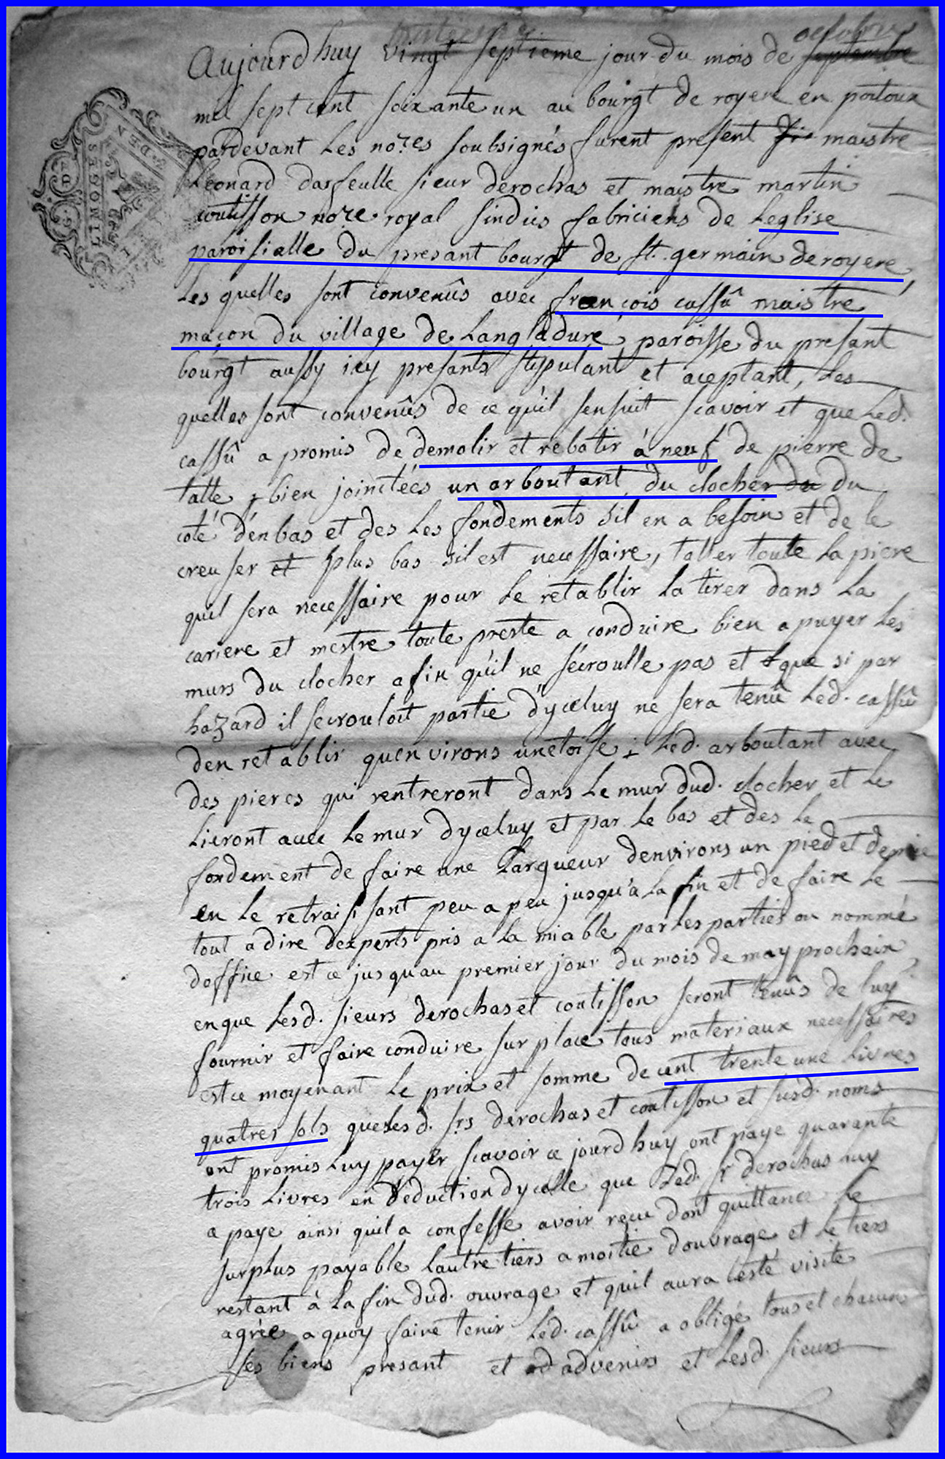 octobre
Aujourdhuy vingt septieme jour du mois de septembre
mil sept cent soixante un au bourgt de royere en poitoux
pardevant Les no.res soubsignés furent present maistre
Leonard dasfeulle sieur derochas et maistre martin
coutisson no.re royal sindics fabriciens de Leglise
paroisialle du presant bourgt de St. germain deroyere,
Les quelles sont convenûs avec francois cassû maistre
maçon du village de Langladure, paroisse du presant
bourgt aussy icy presants stipulant et aceptant, Les
quelles sont convenûs de ce qu'il sensuit scavoir et que Led.
cassû a promis de demolir et rebatir à neuf de pierre de
talle, bien jointées un arboutant du clocher du du
coté d'en bas et des Les fondements sil en a besoin et de le
creuser et plus bas sil est necessaire, taller toute La piere
quil sera necessaire pour Le retablir La tirer dans La
cariere et mestre toute preste a conduire bien apuyer Les
murs du clocher afin qu'il ne sécroulle pas et que si par
hazard il secrouloit partie d'yceluy ne sera tenû Led. cassû
den retablir quenvirons unetoise; Led. arboutant avec
des pieres qui rentreront dans Le mur dud. clocher et Le
Lieront avec Le mur dyceluy et par Le bas et des Le
fondement de faire une Largueur denvirons un pied et demie
en Le retraississant peu a peu jusqu'a La fin et de faire Le
tout a dire dexperts pris a La miable par Les parties ou nommé
doffice est ce jusquau premier jour du mois de may prochain,
en que Lesd. sieurs derochas et coutisson seront tenûs de luy
fournir et faire conduire sur place tous materiaux necessaires
est ce moyenant Le prix et somme de cent trente une Livres
quatres sols que Lesd. srs derochas et coutisson et susd. noms
ont promis Luy payer scavoir ce jourdhuy ont paye quarante
trois Livres en deduction dycelle que Led. sr derochas luy
a paye ainsi quil a confesse avoir reçu dont quittance Le
surplus payable Lautre tiers a moitie douvrage et Le tiers
restant à La fin dud. ouvrage et quil aura esté visite
agrée a quoy faire tenir Led. cassû a obligé tous et chacun
ses biens presant et advenirs et Lesd. sieurs
LIMOGES